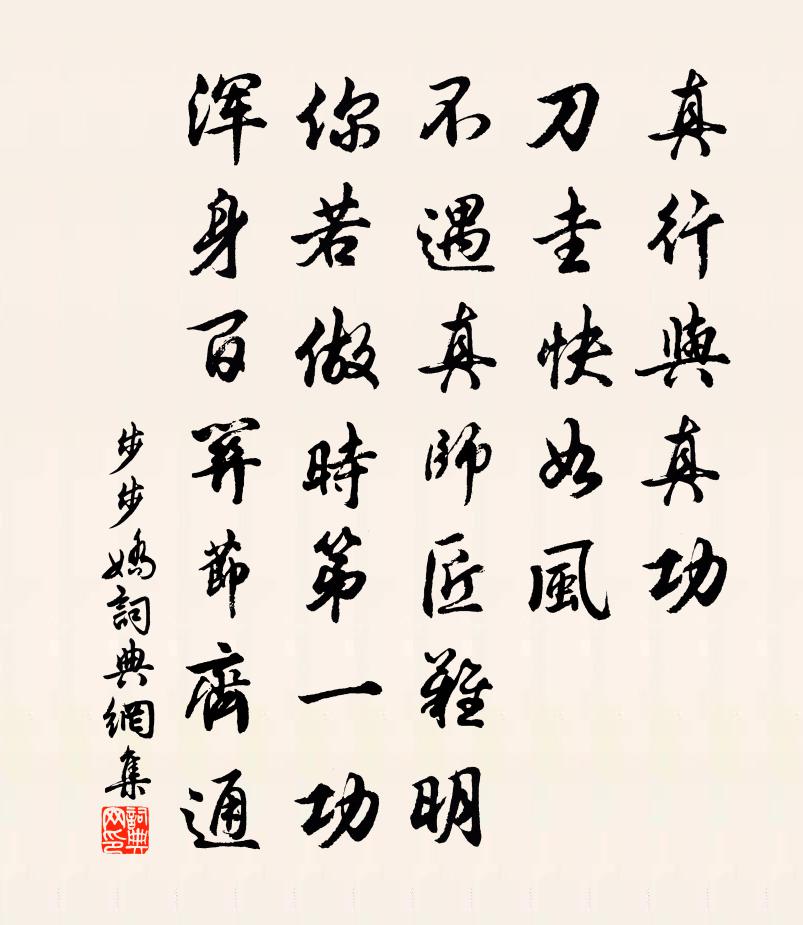 真行與真功
刀圭快如風
不遇真師匠難明
你若做時第一功
渾身百關節齊通
步步嬌詞典網集
詞典網印